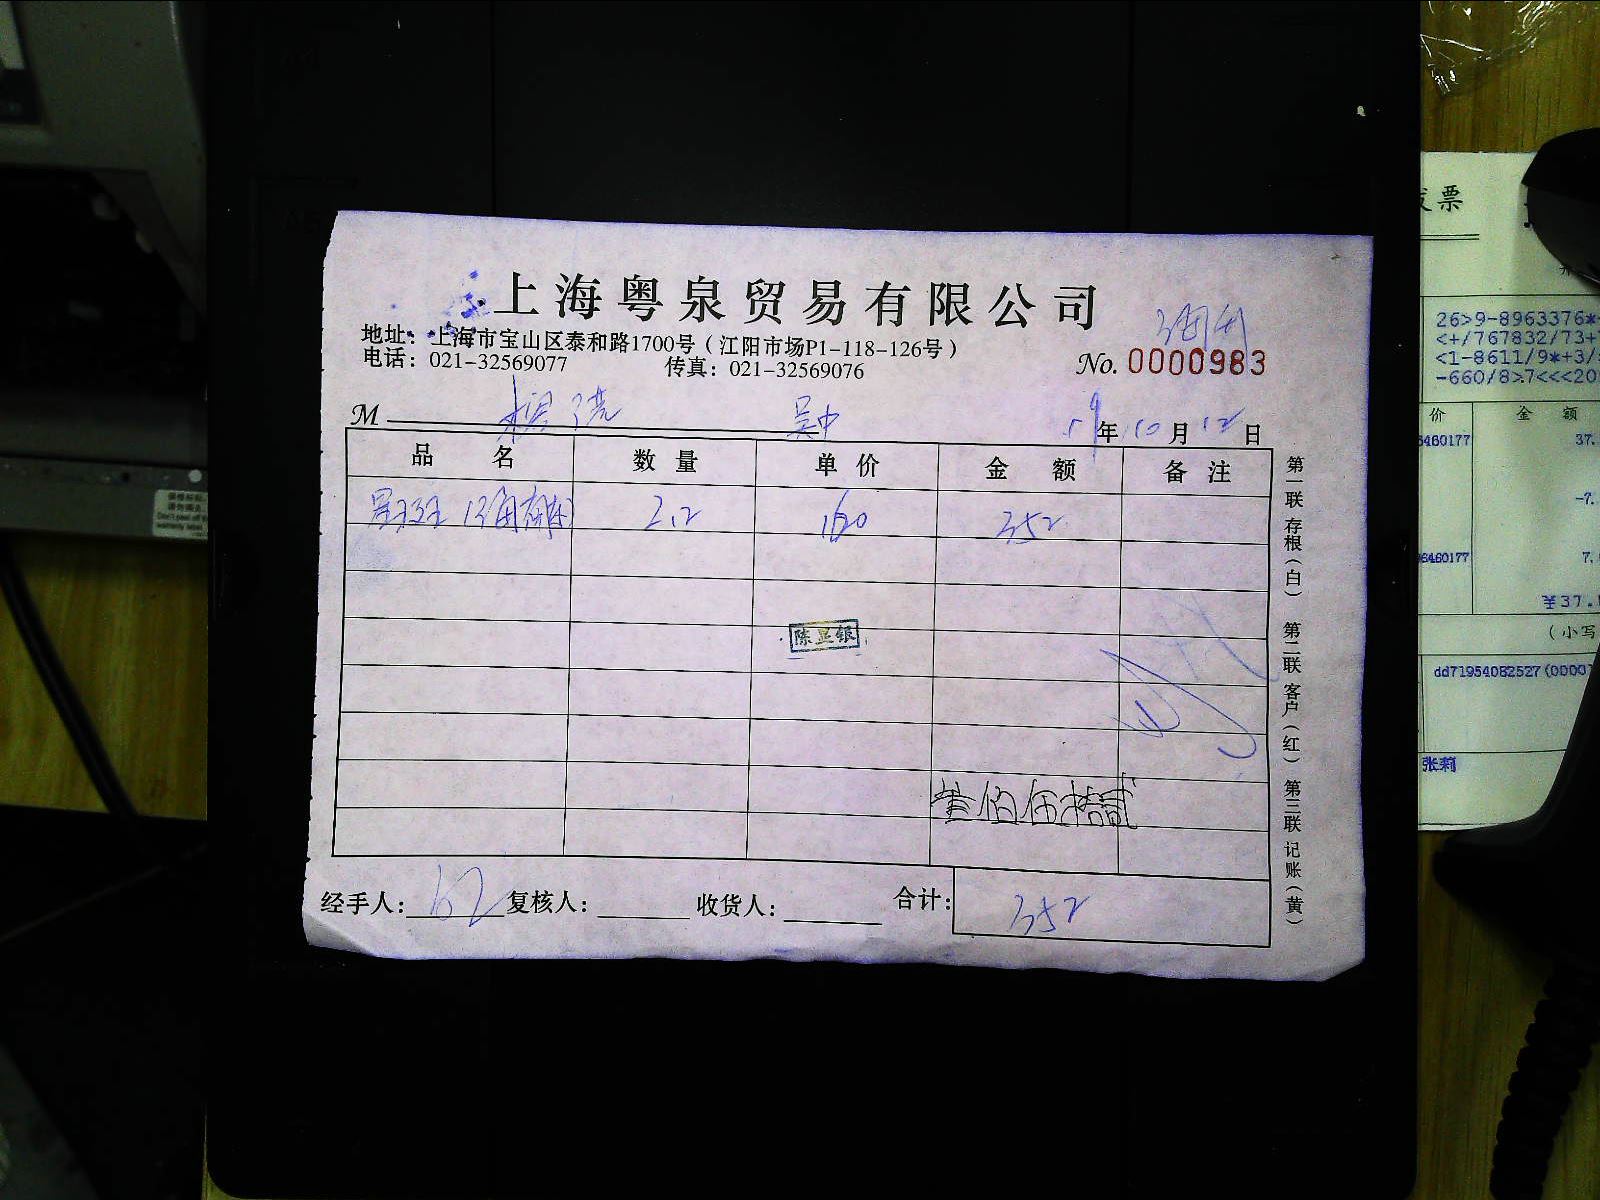 上海粤泉贸易有限公司
地址：上海市宝山区泰和路1700号（江阳市场P1-118-126号）
电话：021-32569077 传真：021-32569076
No. 0000983
M 吴中 19年10月12日
品名 数量 单价 金额 备注
2.2 160 352
叁佰伍拾贰
经手人： 复核人： 收货人： 合计：352
第一联 存根（白） 第二联 客户（红） 第三联 记账（黄）
票
26>9-8963376*
<+/767832/73+
<1-8611/9*+3/
-660/8>7<<<20
价 金 额
6460177 37.
-7.
6460177 7.
¥37.
（小写
dd71954082527(0000
张莉